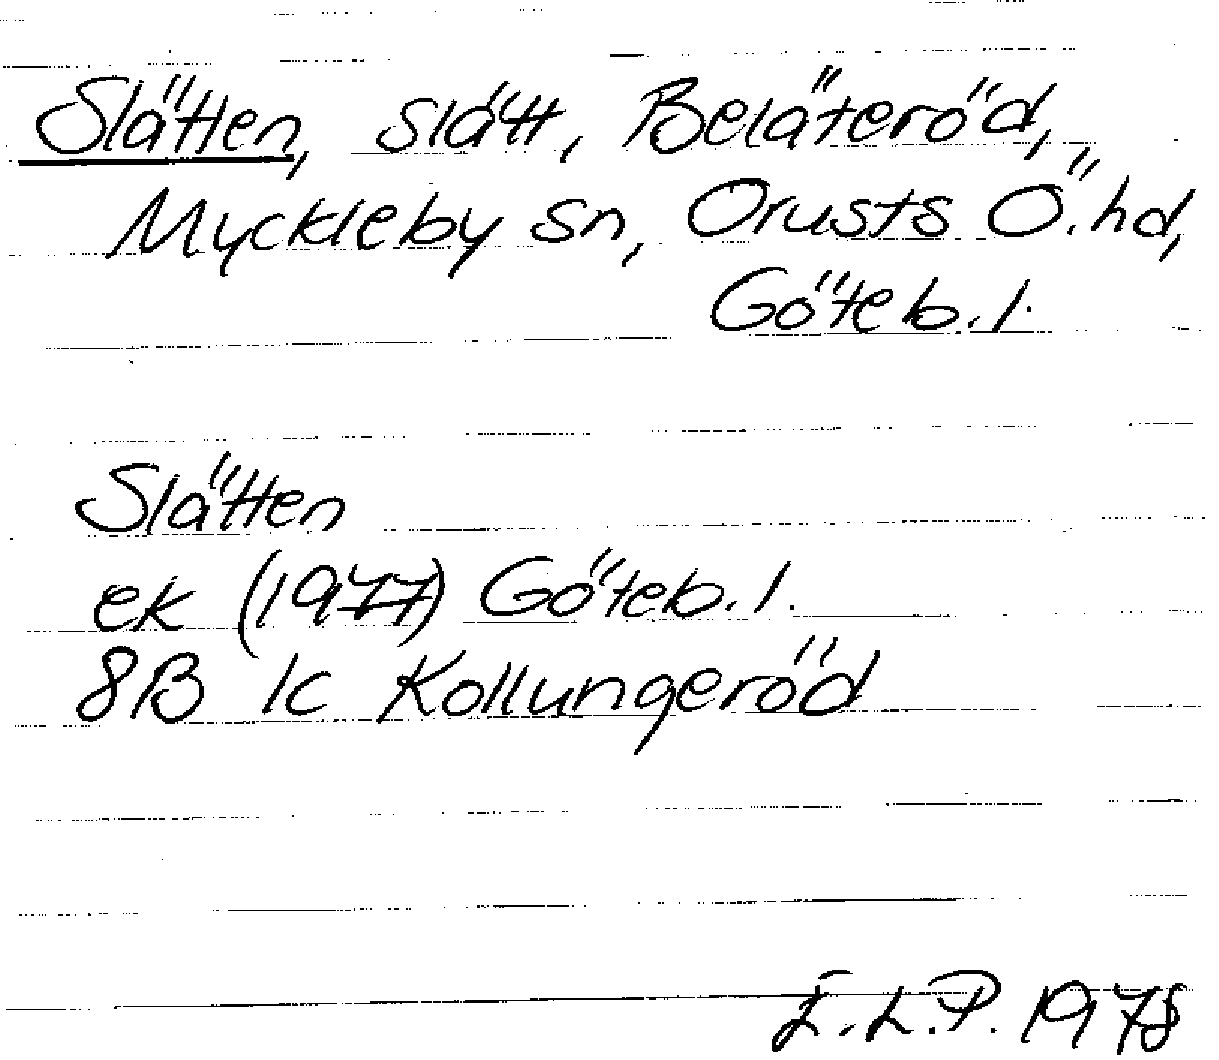 Slätten, slätt, Beläteröd,
Myckleby sn, Orusts Ö. hd,
Göteb. l.
Slätten
ek (1977) Göteb. l.
8B 1c Kollungeröd
E.L.P. 1978